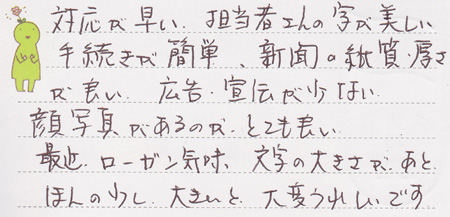 対応が早い、担当者さんの字が美しい
手続きが簡単、新聞の紙質・厚さ
が良い、広告・宣伝が少ない
顔写真があるのが、とても良い
最近、ローガン気味、文字の大きさが、あと
ほんの少し、大きいと、大変うれしいです